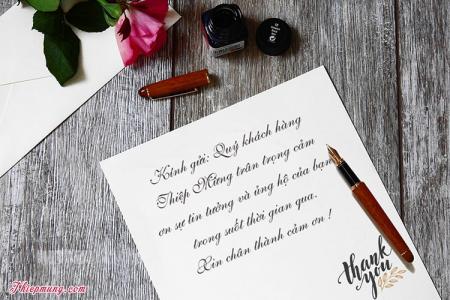 Kính gửi: Quý khách hàng
Thiệp Mừng trân trọng cảm
ơn sự tin tưởng và ủng hộ của bạn
trong suốt thời gian qua.
Xin chân thành cảm ơn !
thank
you
Thiepmung.com